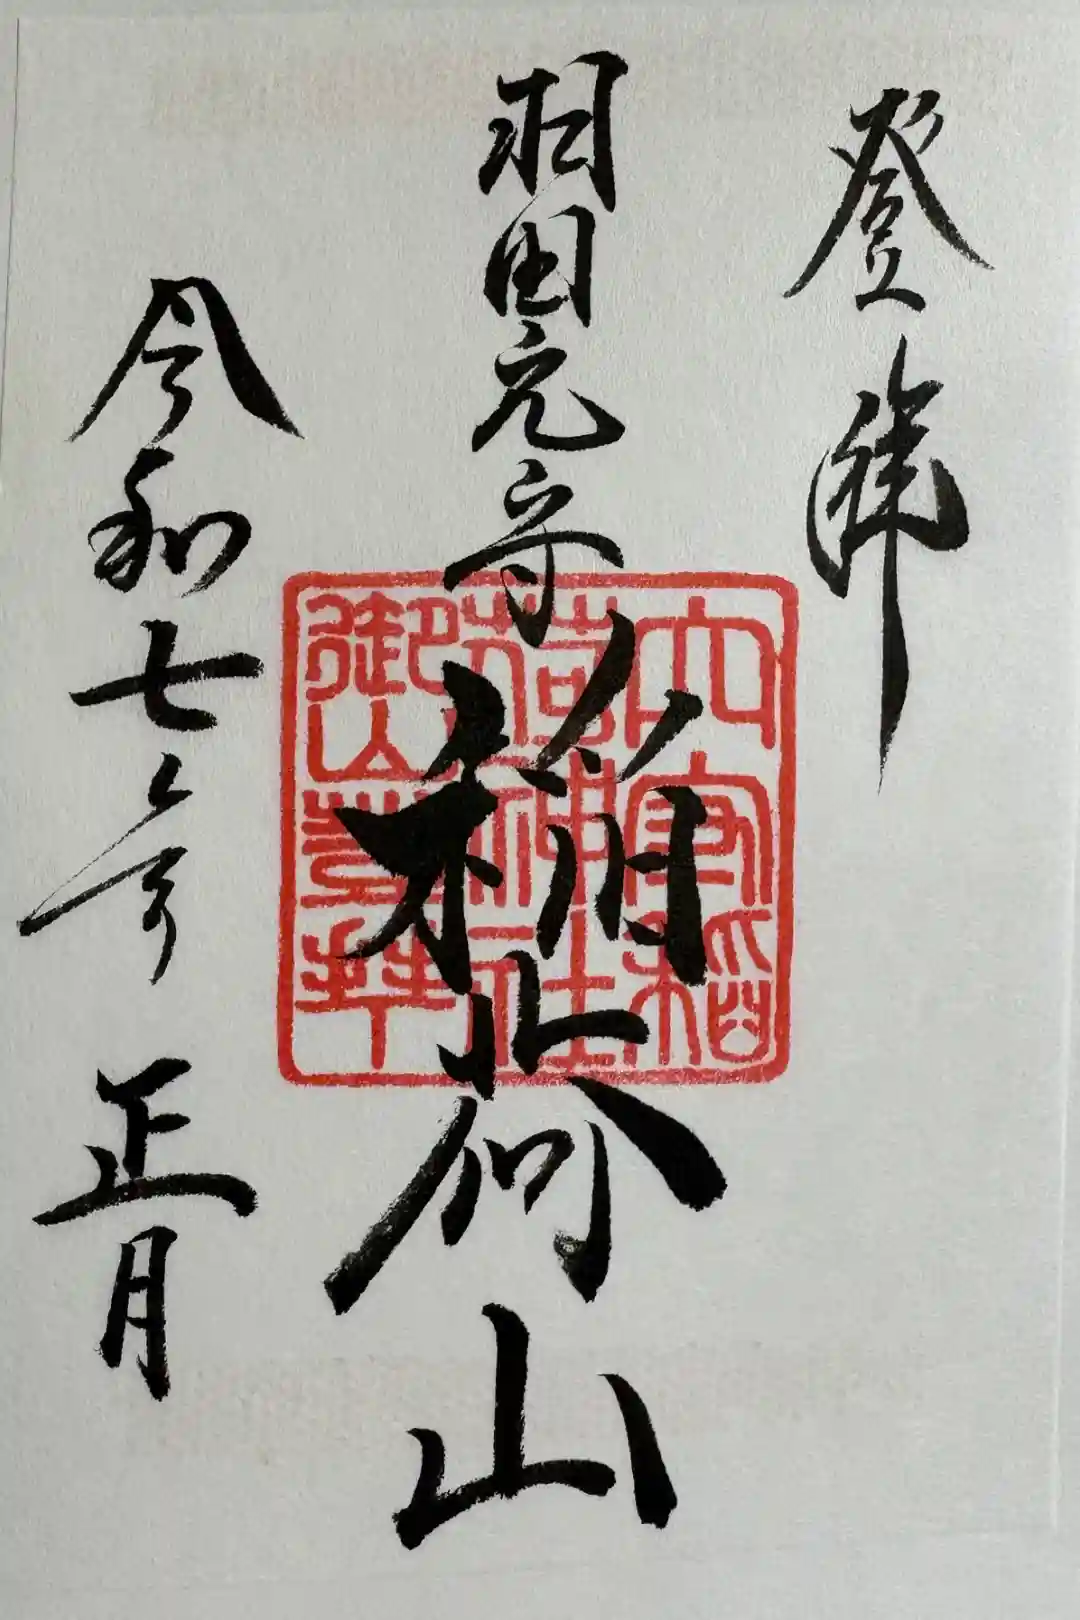 登拝
羽田穴守
稲荷山
令和七年 正月
穴守稲
荷神社
御山参拝